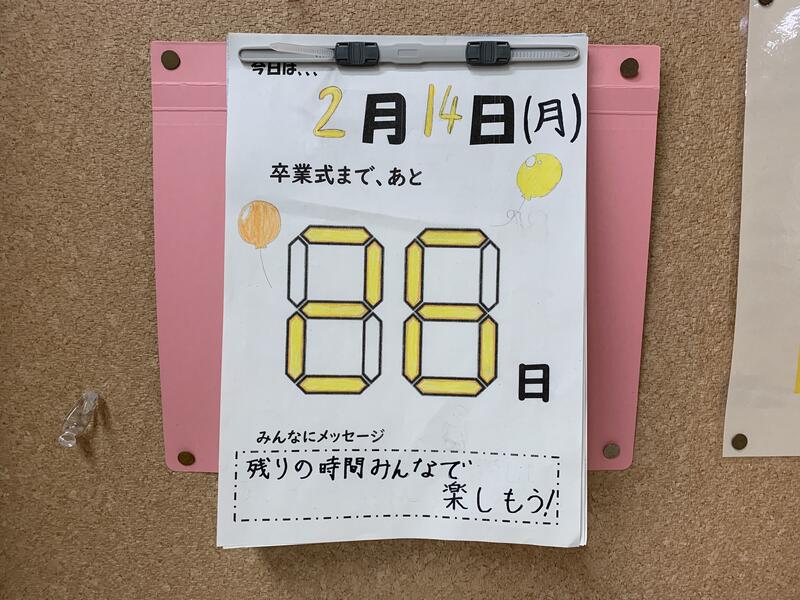 今日は、、、
2月14日(月)
卒業式まで、あと
26日
みんなにメッセージ
残りの時間みんなで
楽しもう!